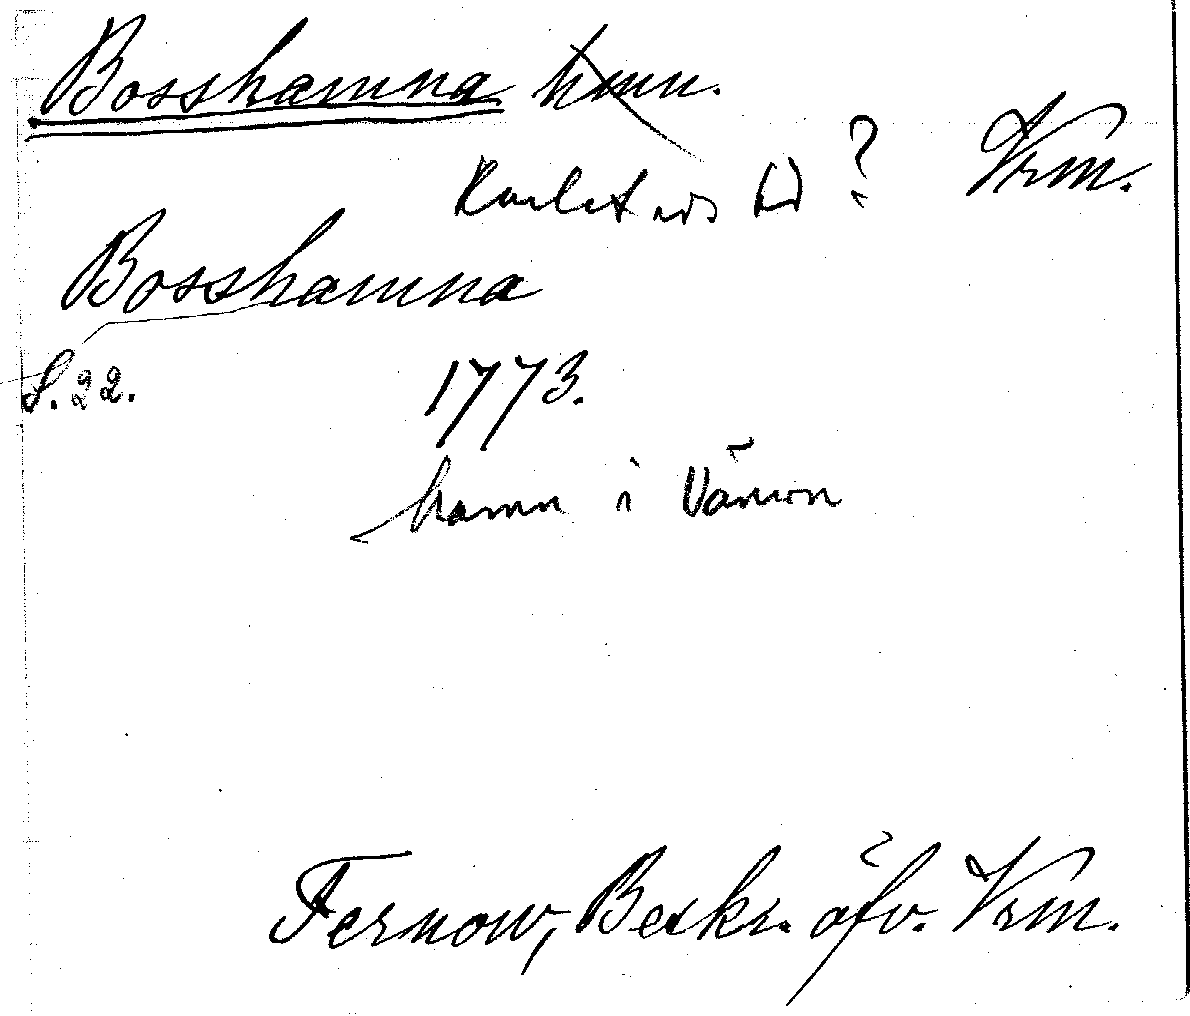 Bosshamna hmn.
Karlstads hd ? Vrm.
Bosshamna
S. 22. 1773.
hamn i Vänern
Fernow, Beskr. öfv. Vrm.